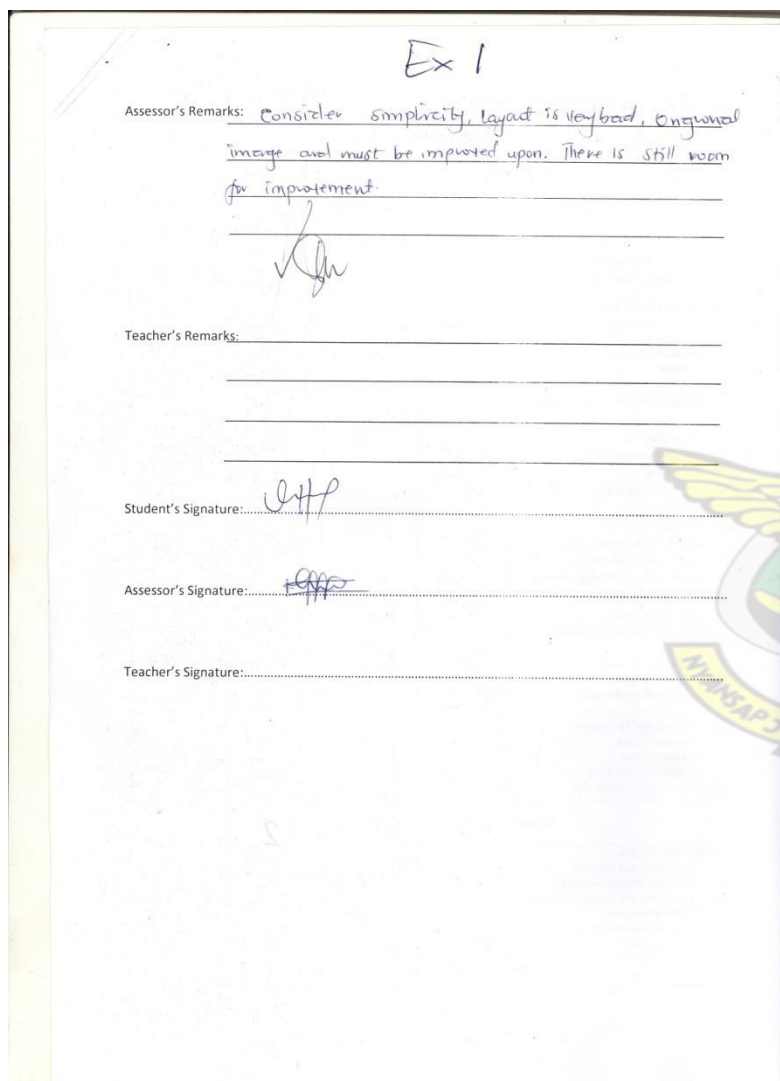 Ex 1
Assessor's Remarks: Consider simplicity, layout is very bad,
image and must be improved upon. There is still room
for improvement.
Teacher's Remarks:
Student's Signature:
Assessor's Signature:
Teacher's Signature:
NYANSAP